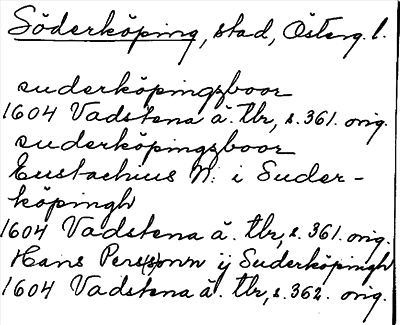 Söderköping, stad, Österg. l.
suderköpingzboor
1604 Vadstena ä. tbr, s. 361. orig.
suderköpingzboor
Eustachius N: i Suder-
köpingh
1604 Vadstena ä. tbr, s. 361. orig.
Hans Pers(s)onn ij Suderköpingh
1604 Vadstena ä. tbr, s. 362. orig.